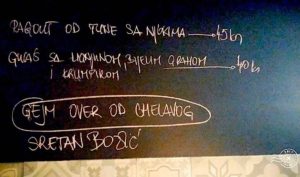 RAGOUT OD TUNE SA NJOKIMA → 45 kn
GULAŠ SA DIVLJAČINOM, BIJELIM GRAHOM → 40 kn
I KRUMPIROM
GEJM OVER OD ĆHELAVOG
SRETAN BOŽIĆ